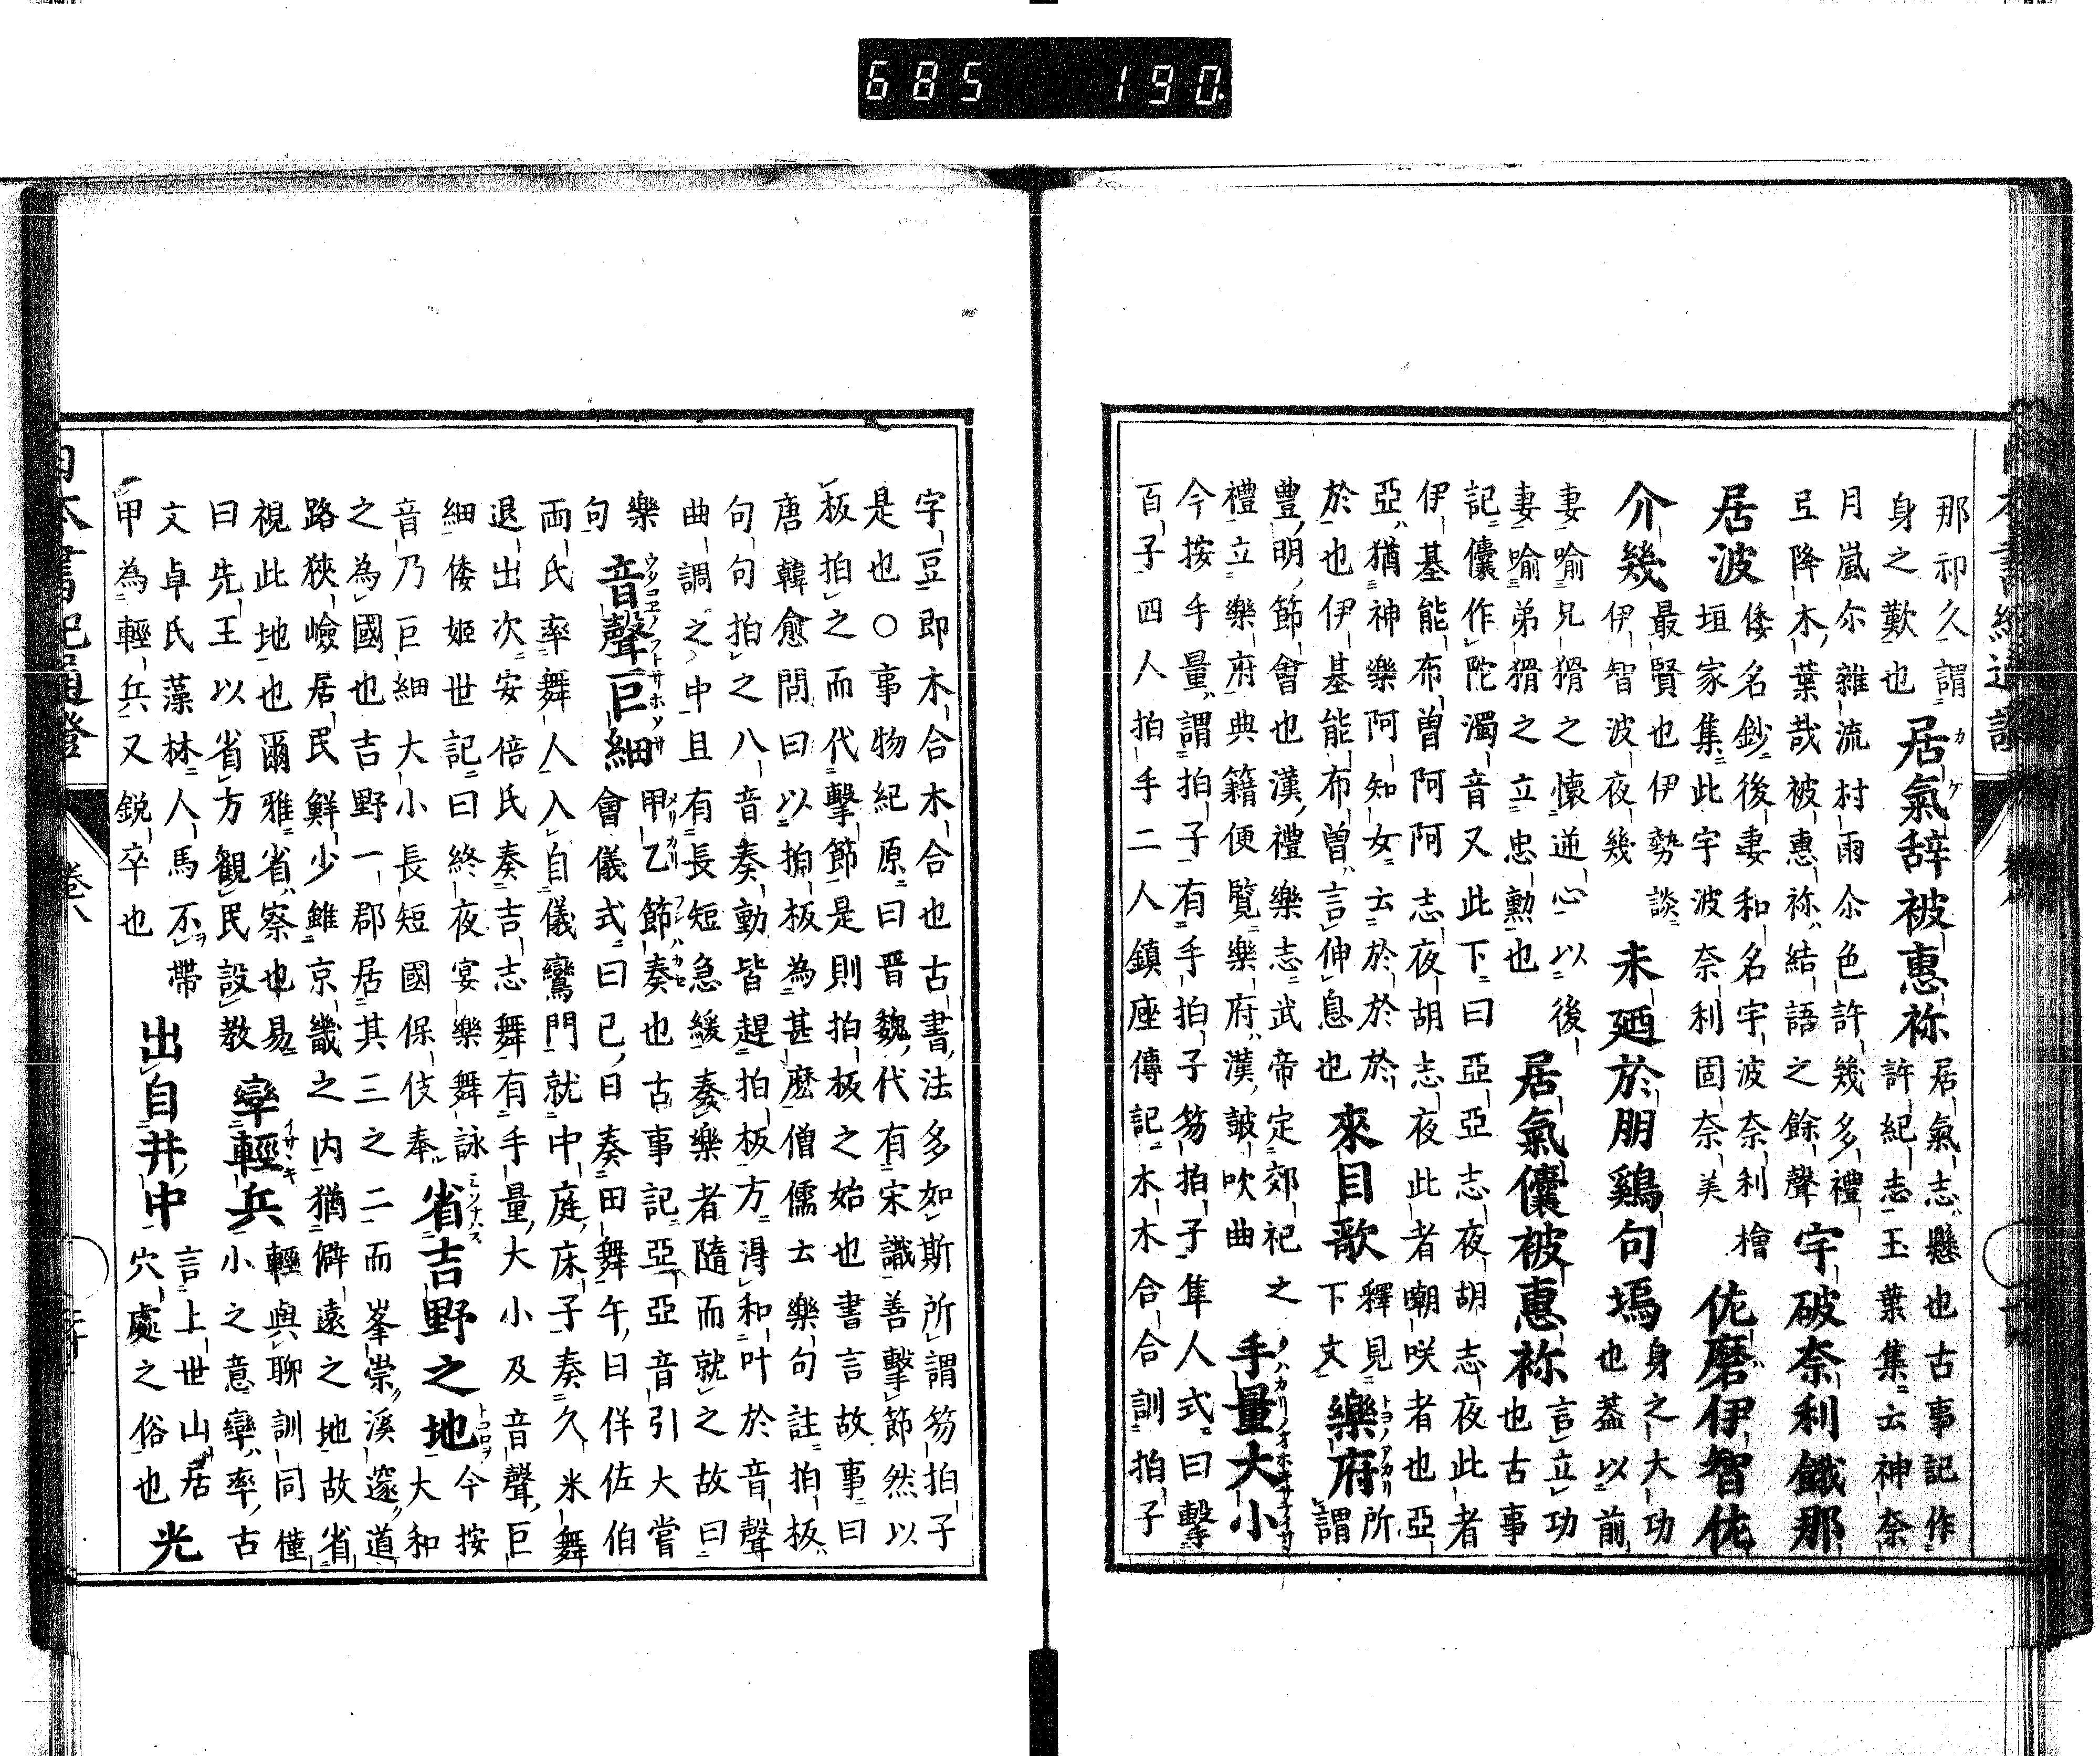 685 190.
那祁久謂
身之歎也
居氣辞被惠祢
居氣志懸也古事記作
許紀志玉葉集云神奈
月嵐尓雜流村雨尓色許幾多禮
𢎨降木葉哉被惠祢結語之餘聲
宇破奈利餓那
居波
倭名鈔後妻和名宇波奈利檜
垣家集此宇波奈利固奈美
佐磨伊智佐
介幾
最賢也伊勢談
伊智波夜幾
未廼於朋鷄句塢
身之大功
也葢以前
妻喻兄猾之懷逆心以後
妻喻弟猾之立忠勲也
居氣儾被惠祢
言立功
也古事
記儾作陀濁音又此下曰亞亞志夜胡志夜此者
伊基能布曽阿阿志夜胡志夜此者嘲咲者也亞
亞猶神樂阿知女云於於於
於也伊基能布曽言伸息也
來目歌
釋見
下文
樂府
所
謂
豊明節會也漢禮樂志武帝定郊祀之
禮立樂府典籍便覽樂府漢皷吹曲
手量大小
今按手量謂拍子有手拍子笏拍子隼人式曰擊
百子四人拍手二人鎮座傳記木木合合訓拍子
字豆即木合木合也古書法多如斯所謂笏拍子
是也○事物紀原曰晋魏代有宋識善擊節然以
板拍之而代擊節是則拍板之始也書言故事曰
唐韓愈問曰以拍板為甚麽僧儒云樂句註拍板
句句拍之八音奏動皆趕拍板方淂和叶於音聲
曲調之中且有長短急緩奏樂者隨而就之故曰
樂
句
音聲巨細
甲乙節奏也古事記亞亞音引大嘗
會儀式曰已日奏田舞午日佯佐伯
両氏率舞人入自儀鸞門就中庭床子奏久米舞
退出次安倍氏奏吉志舞有手量大小及音聲巨
細倭姬世記曰終夜宴樂舞詠
音乃巨細大小長短國保伎奉
省吉野之地
今按
大和
之為國也吉野一郡居其三之二而峯崇溪邃道
路狹嶮居民鮮少雖京畿之内猶僻遠之地故省
視此地也爾雅省察也易
曰先王以省方觀民設教
率輕兵
輕與聊訓同僅
小之意率古
文卓氏藻林人馬不帶
甲為輕兵又鋭卒也
出自井中
言上世山居
穴處之俗也
光
日本書紀通證
卷八